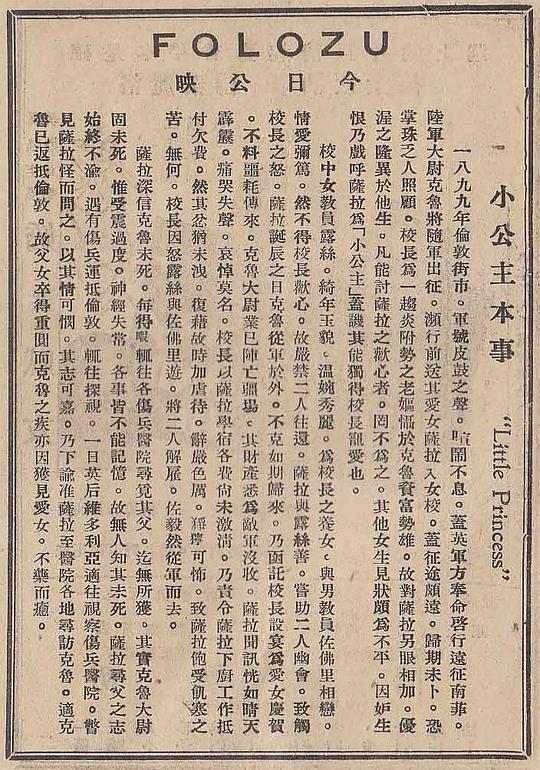 FOLOZU
映公日今
小公主本事 “Little Princess”
一八九九年倫敦街市。軍號皮鼓之聲。喧鬧不息。蓋英軍方奉命啓行遠征南菲。
陸軍大尉克魯將隨軍出征。瀕行前送其愛女薩拉入女校。蓋征途頗遠。歸期未卜。恐
掌珠乏人照顧。校長為一趨炎附勢之老嫗懾於克魯資富勢雄。故對薩拉另眼相加。優
渥之隆異於他生。凡能討薩拉之歡心者。罔不為之。其他女生見狀頗為不平。因妒生
恨乃戲呼薩拉為「小公主」蓋譏其能獨得校長寵愛也。
校中女教員露絲。綺年玉貌。温婉秀麗。為校長之養女。與男教員佐佛里相戀。
情愛彌篤。然不得校長歡心。故嚴禁二人往還。薩拉與露絲善。嘗助二人幽會。致觸
校長之怒。薩拉誕辰之日克魯從軍於外。不克如期歸來。乃函託校長設宴為愛女慶賀
。不料噩耗傳來。克魯大尉業已陣亡疆場。其財產悉為敵軍沒收。薩拉聞訊恍如晴天
霹靂。痛哭失聲。哀悼莫名。校長以薩拉學宿各費尚未激清。乃責令薩拉下廚工作抵
付欠費。然其忿猶未洩。復藉故時加虐待。辭嚴色厲。猙獰可怖。致薩拉飽受飢寒之
苦。無何。校長因怒露絲與佐佛里遊。將二人解雇。佐毅然從軍而去。
薩拉深信克魯未死。每得暇輒往各傷兵醫院尋覓其父。迄無所獲。其實克魯大尉
固未死。惟受震過度。神經失常。各事皆不能記憶。故無人知其未死。薩拉尋父之志
始終不渝。遇有傷兵運抵倫敦。輒往探視。一日英后維多利亞適往視察傷兵醫院。瞥
見薩拉怪而問之。以其情可憫。其志可嘉。乃下諭准薩拉至醫院各地尋訪克魯。適克
魯已返抵倫敦。故父女卒得重圓而克魯之疾亦因獲見愛女。不藥而癒。